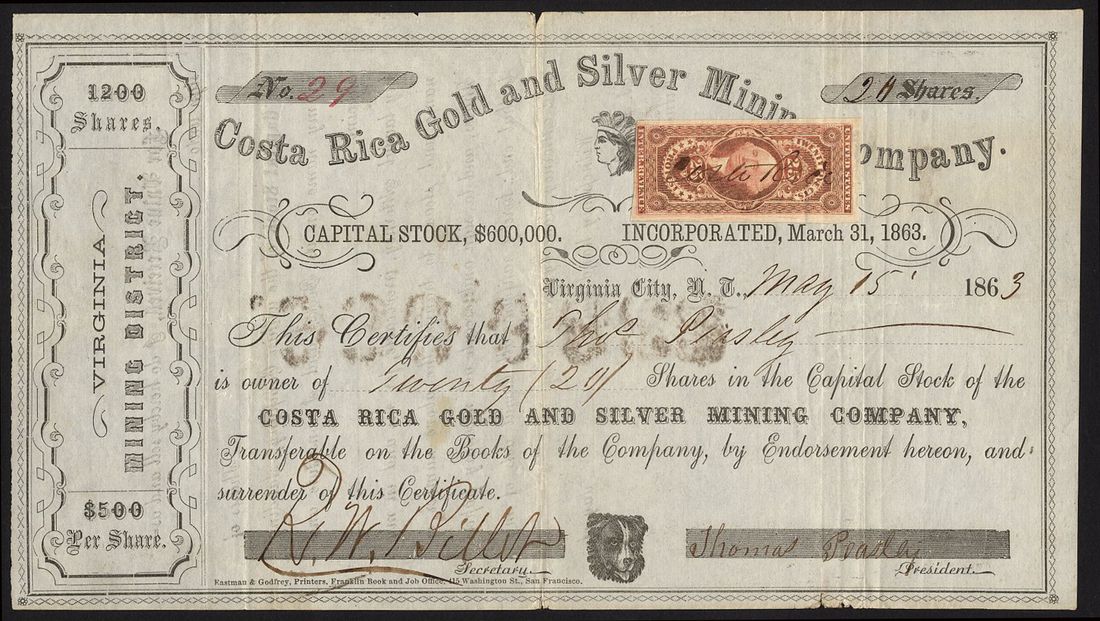 1200
Shares.
VIRGINIA
MINING DISTRICT.
$500
Per Share.
No. 29
20 Shares.
Costa Rica Gold and Silver Mining Company.
UNITED STATES
CAPITAL STOCK, $600,000. INCORPORATED, March 31, 1863.
Virginia City, N. T. May 15 1863
This Certifies that Thos Peasley
is owner of Twenty (20) Shares in the Capital Stock of the
COSTA RICA GOLD AND SILVER MINING COMPANY,
Transferable on the Books of the Company, by Endorsement hereon, and
surrender of this Certificate.
R. W. Billet
Secretary.
Thomas Peasley
President.
Eastman & Godfrey, Printers, Franklin Book and Job Office, 415 Washington St., San Francisco.